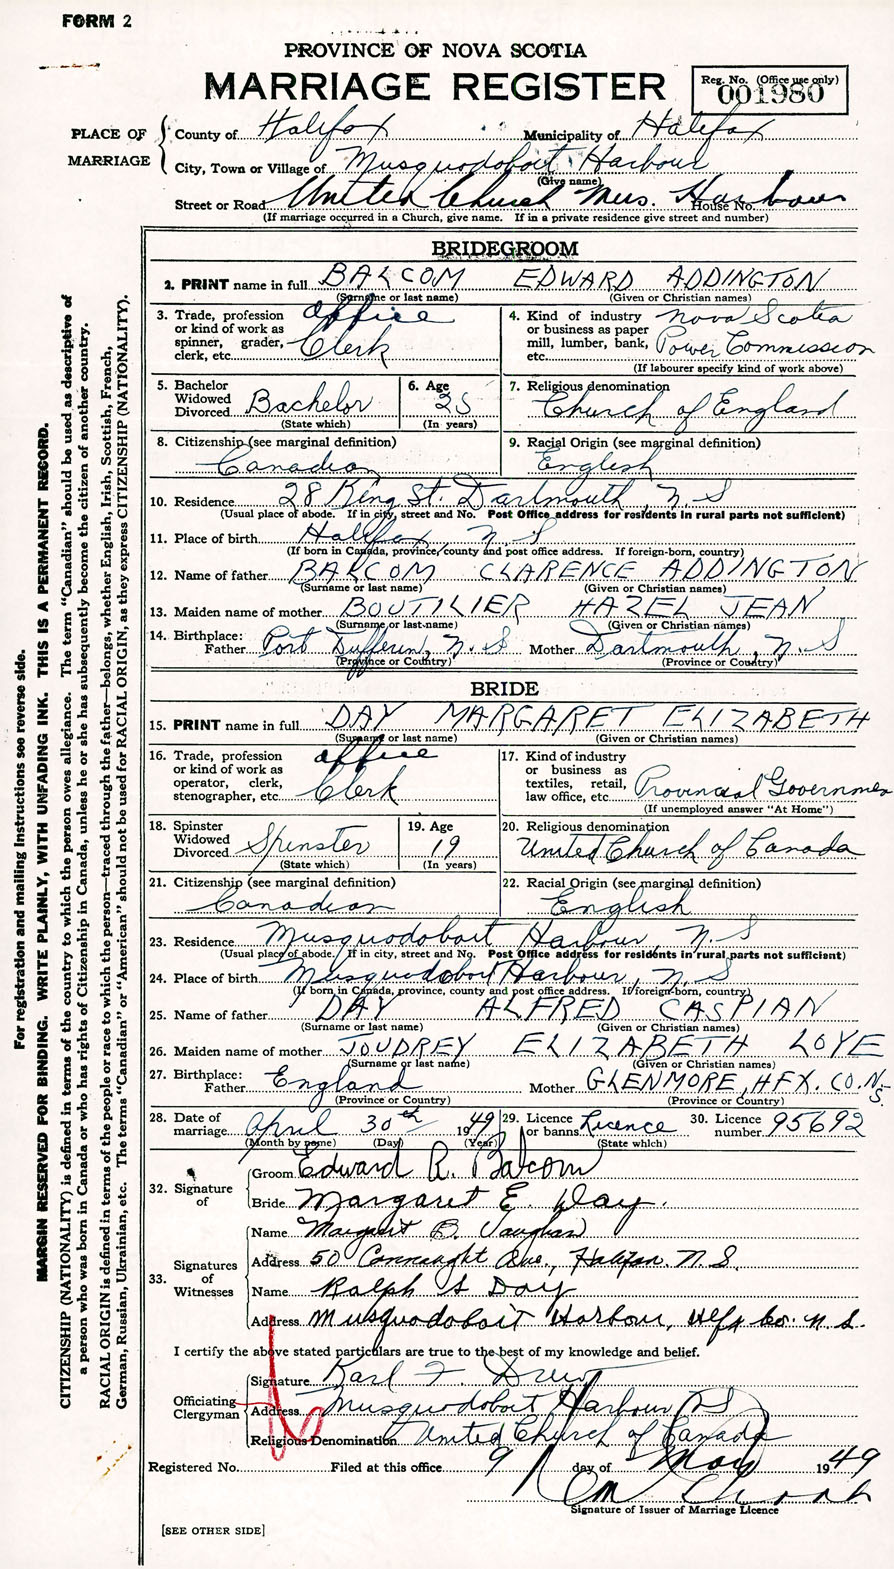 FORM 2
PROVINCE OF NOVA SCOTIA
MARRIAGE REGISTER
Reg. No. (Office use only)
001980
PLACE OF MARRIAGE
County of Halifax Municipality of Halifax
City, Town or Village of Musquodoboit Harbour
(Give name)
Street or Road United Church Mus. Harbour House No.
(If marriage occurred in a Church, give name. If in a private residence give street and number)
BRIDEGROOM
2. PRINT name in full BALCOM EDWARD ADDINGTON
(Surname or last name) (Given or Christian names)
3. Trade, profession or kind of work as spinner, grader, clerk, etc. Office Clerk
4. Kind of industry or business as paper mill, lumber, bank, etc. Nova Scotia Power Commission
(If labourer specify kind of work above)
5. Bachelor Widowed Divorced Bachelor
(State which)
6. Age 25
(In years)
7. Religious denomination
Church of England
8. Citizenship (see marginal definition)
Canadian
9. Racial Origin (see marginal definition)
English
10. Residence 28 King St. Dartmouth, N. S
(Usual place of abode. If in city, street and No. Post Office address for residents in rural parts not sufficient)
11. Place of birth Halifax, N. S
(If born in Canada, province, county and post office address. If foreign-born, country)
12. Name of father BALCOM CLARENCE ADDINGTON
(Surname or last name) (Given or Christian names)
13. Maiden name of mother BOUTILIER HAZEL JEAN
(Surname or last name) (Given or Christian names)
14. Birthplace:
Father Port Dufferin, N. S Mother Dartmouth, N. S
(Province or Country) (Province or Country)
BRIDE
15. PRINT name in full DAY MARGARET ELIZABETH
(Surname or last name) (Given or Christian names)
16. Trade, profession or kind of work as operator, clerk, stenographer, etc. Office Clerk
17. Kind of industry or business as textiles, retail, law office, etc. Provincial Governmen
(If unemployed answer "At Home")
18. Spinster Widowed Divorced Spinster
(State which)
19. Age 19
(In years)
20. Religious denomination
United Church of Canada
21. Citizenship (see marginal definition)
Canadian
22. Racial Origin (see marginal definition)
English
23. Residence Musquodoboit Harbour, N. S
(Usual place of abode. If in city, street and No. Post Office address for residents in rural parts not sufficient)
24. Place of birth Musquodoboit Harbour, N. S
(If born in Canada, province, county and post office address. If foreign-born, country)
25. Name of father DAY ALFRED CASPIAN
(Surname or last name) (Given or Christian names)
26. Maiden name of mother JOUDREY ELIZABETH LOYE
(Surname or last name) (Given or Christian names)
27. Birthplace:
Father England Mother GLENMORE, HFX. CO. N. S.
(Province or Country) (Province or Country)
28. Date of marriage April 30th 1949
(Month by name) (Day) (Year)
29. Licence or banns Licence
(State which)
30. Licence number 95692
32. Signature of
Groom Edward R. Balcom
Bride Margaret E. Day.
33. Signatures of Witnesses
Name Margaret B. Vaughan
Address 50 Connaught Ave., Halifax. N. S.
Name Ralph S Day
Address Musquodoboit Harbour, Hlfx Co. N. S.
I certify the above stated particulars are true to the best of my knowledge and belief.
Officiating Clergyman
Signature Karl F. Drew
Address Musquodoboit Harbour NS
Religious Denomination United Church of Canada
Registered No. Filed at this office 9 day of May 1949
Signature of Issuer of Marriage Licence
[SEE OTHER SIDE]
For registration and mailing Instructions see reverse side.
MARGIN RESERVED FOR BINDING. WRITE PLAINLY, WITH UNFADING INK. THIS IS A PERMANENT RECORD.
CITIZENSHIP (NATIONALITY) is defined in terms of the country to which the person owes allegiance. The term "Canadian" should be used as descriptive of
a person who was born in Canada or who has rights of Citizenship in Canada, unless he or she has subsequently become the citizen of another country.
RACIAL ORIGIN is defined in terms of the people or race to which the person—traced through the father—belongs, whether English, Irish, Scottish, French,
German, Russian, Ukrainian, etc. The terms "Canadian" or "American" should not be used for RACIAL ORIGIN, as they express CITIZENSHIP (NATIONALITY).